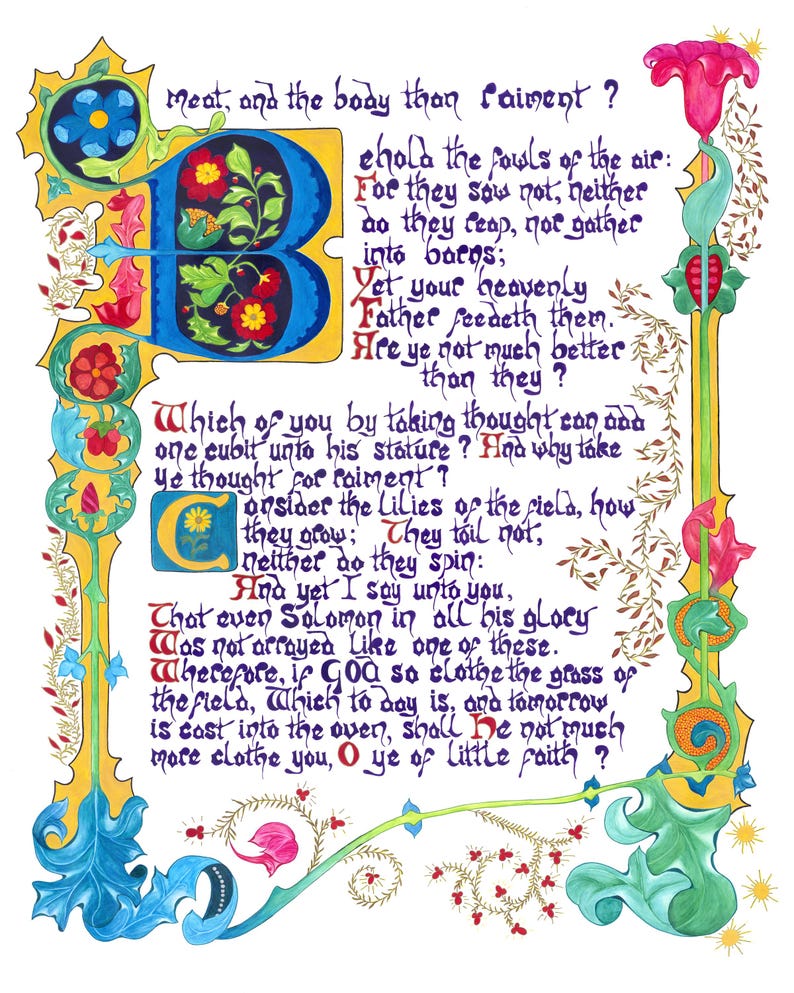 meat, and the body than raiment ?
Behold the fowls of the air:
For they sow not, neither
do they reap, nor gather
into barns;
Yet your heavenly
Father feedeth them.
Are ye not much better
than they ?
Which of you by taking thought can add
one cubit unto his stature ? And why take
ye thought for raiment ?
Consider the Lilies of the field, how
they grow; They toil not,
neither do they spin:
And yet I say unto you,
That even Solomon in all his glory
Was not arrayed like one of these.
Wherefore, if GOD so clothe the grass of
the field, Which to day is, and tomorrow
is cast into the oven, shall He not much
more clothe you, O ye of little faith ?